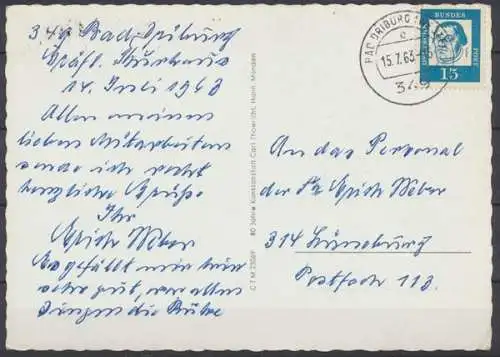 349 Bad Driburg
Gräfl. Kurhaus
14. Juli 1963
Allen meinen
lieben Mitarbeitern
sende ich recht
herzliche Grüße
Ihr
Erich Weber
Es gefällt mir hier
sehr gut, vor allen
Dingen die Ruhe
80 Jahre Kunstanstalt Carl Thoericht, Hann. Münden
CTM
BAD DRIBURG
15.7.63
349
DEUTSCHE BUNDESPOST
15
An das Personal
der Fa Erich Weber
314 Lüneburg
Postfach 113.